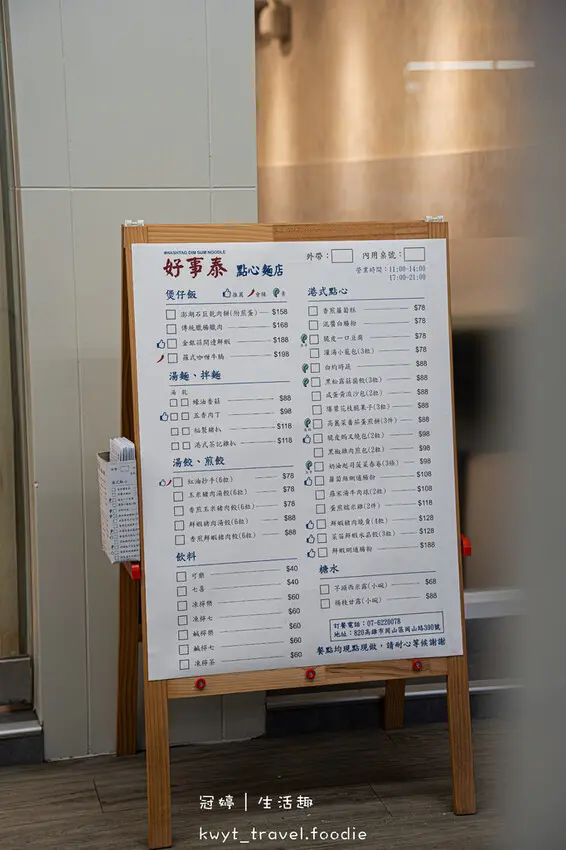 #HASHTAG DIM SUM NOODLE
好事泰 點心麵店
外帶： 內用桌號：
營業時間：11:00-14:00
17:00-21:00
煲仔飯 推薦 會辣 素
澎湖石巨乾肉餅(附煎蛋) $158
傳統臘腸臘肉 $168
金銀蒜開邊鮮蝦 $188
葡式咖哩牛腩 $198
湯麵、拌麵
湯 乾
蠔油香菇 $88
五香肉丁 $98
秘製豬扒 $118
港式茶記雞扒 $118
湯餃、煎餃
紅油抄手(6粒) $78
玉米豬肉湯餃(6粒) $78
香煎玉米豬肉餃(6粒) $78
鮮蝦豬肉湯餃(6粒) $88
香煎鮮蝦豬肉餃(6粒) $88
飲料
可樂 $40
七喜 $40
凍檸樂 $60
凍檸七 $60
鹹檸樂 $60
鹹檸七 $60
凍檸茶 $60
港式點心
香煎蘿蔔糕 $78
混醬白腸粉 $78
脆皮一口豆腐 $78
灌湯小籠包(3粒) $78
白灼時蔬 $78
黑松露菇菌餃(3粒) $78
咸蛋黃流沙包(2粒) $78
爆漿花枝脆果子(3粒) $88
高麗菜番茄蛋煎餅(3件) $88
脆皮焗叉燒包(2粒) $98
黑椒雞肉煎包(2粒) $98
奶油起司菠菜春卷(3條) $98
蘿蔔絲酥通腸粉 $108
蔴茸湯牛肉球(2粒) $108
蛋煎糯米雞(2件) $118
鮮蝦豬肉燒賣(4粒) $128
韮菜鮮蝦水晶餃(3粒) $128
鮮蝦酥通腸粉 $188
糖水
芋頭西米露(小碗) $68
楊枝甘露(小碗) $88
訂餐電話：07-6220078
地址：820高雄市岡山區岡山路390號
餐點均現點現做，請耐心等候謝謝
冠婷｜生活趣
kwyt_travel.foodie